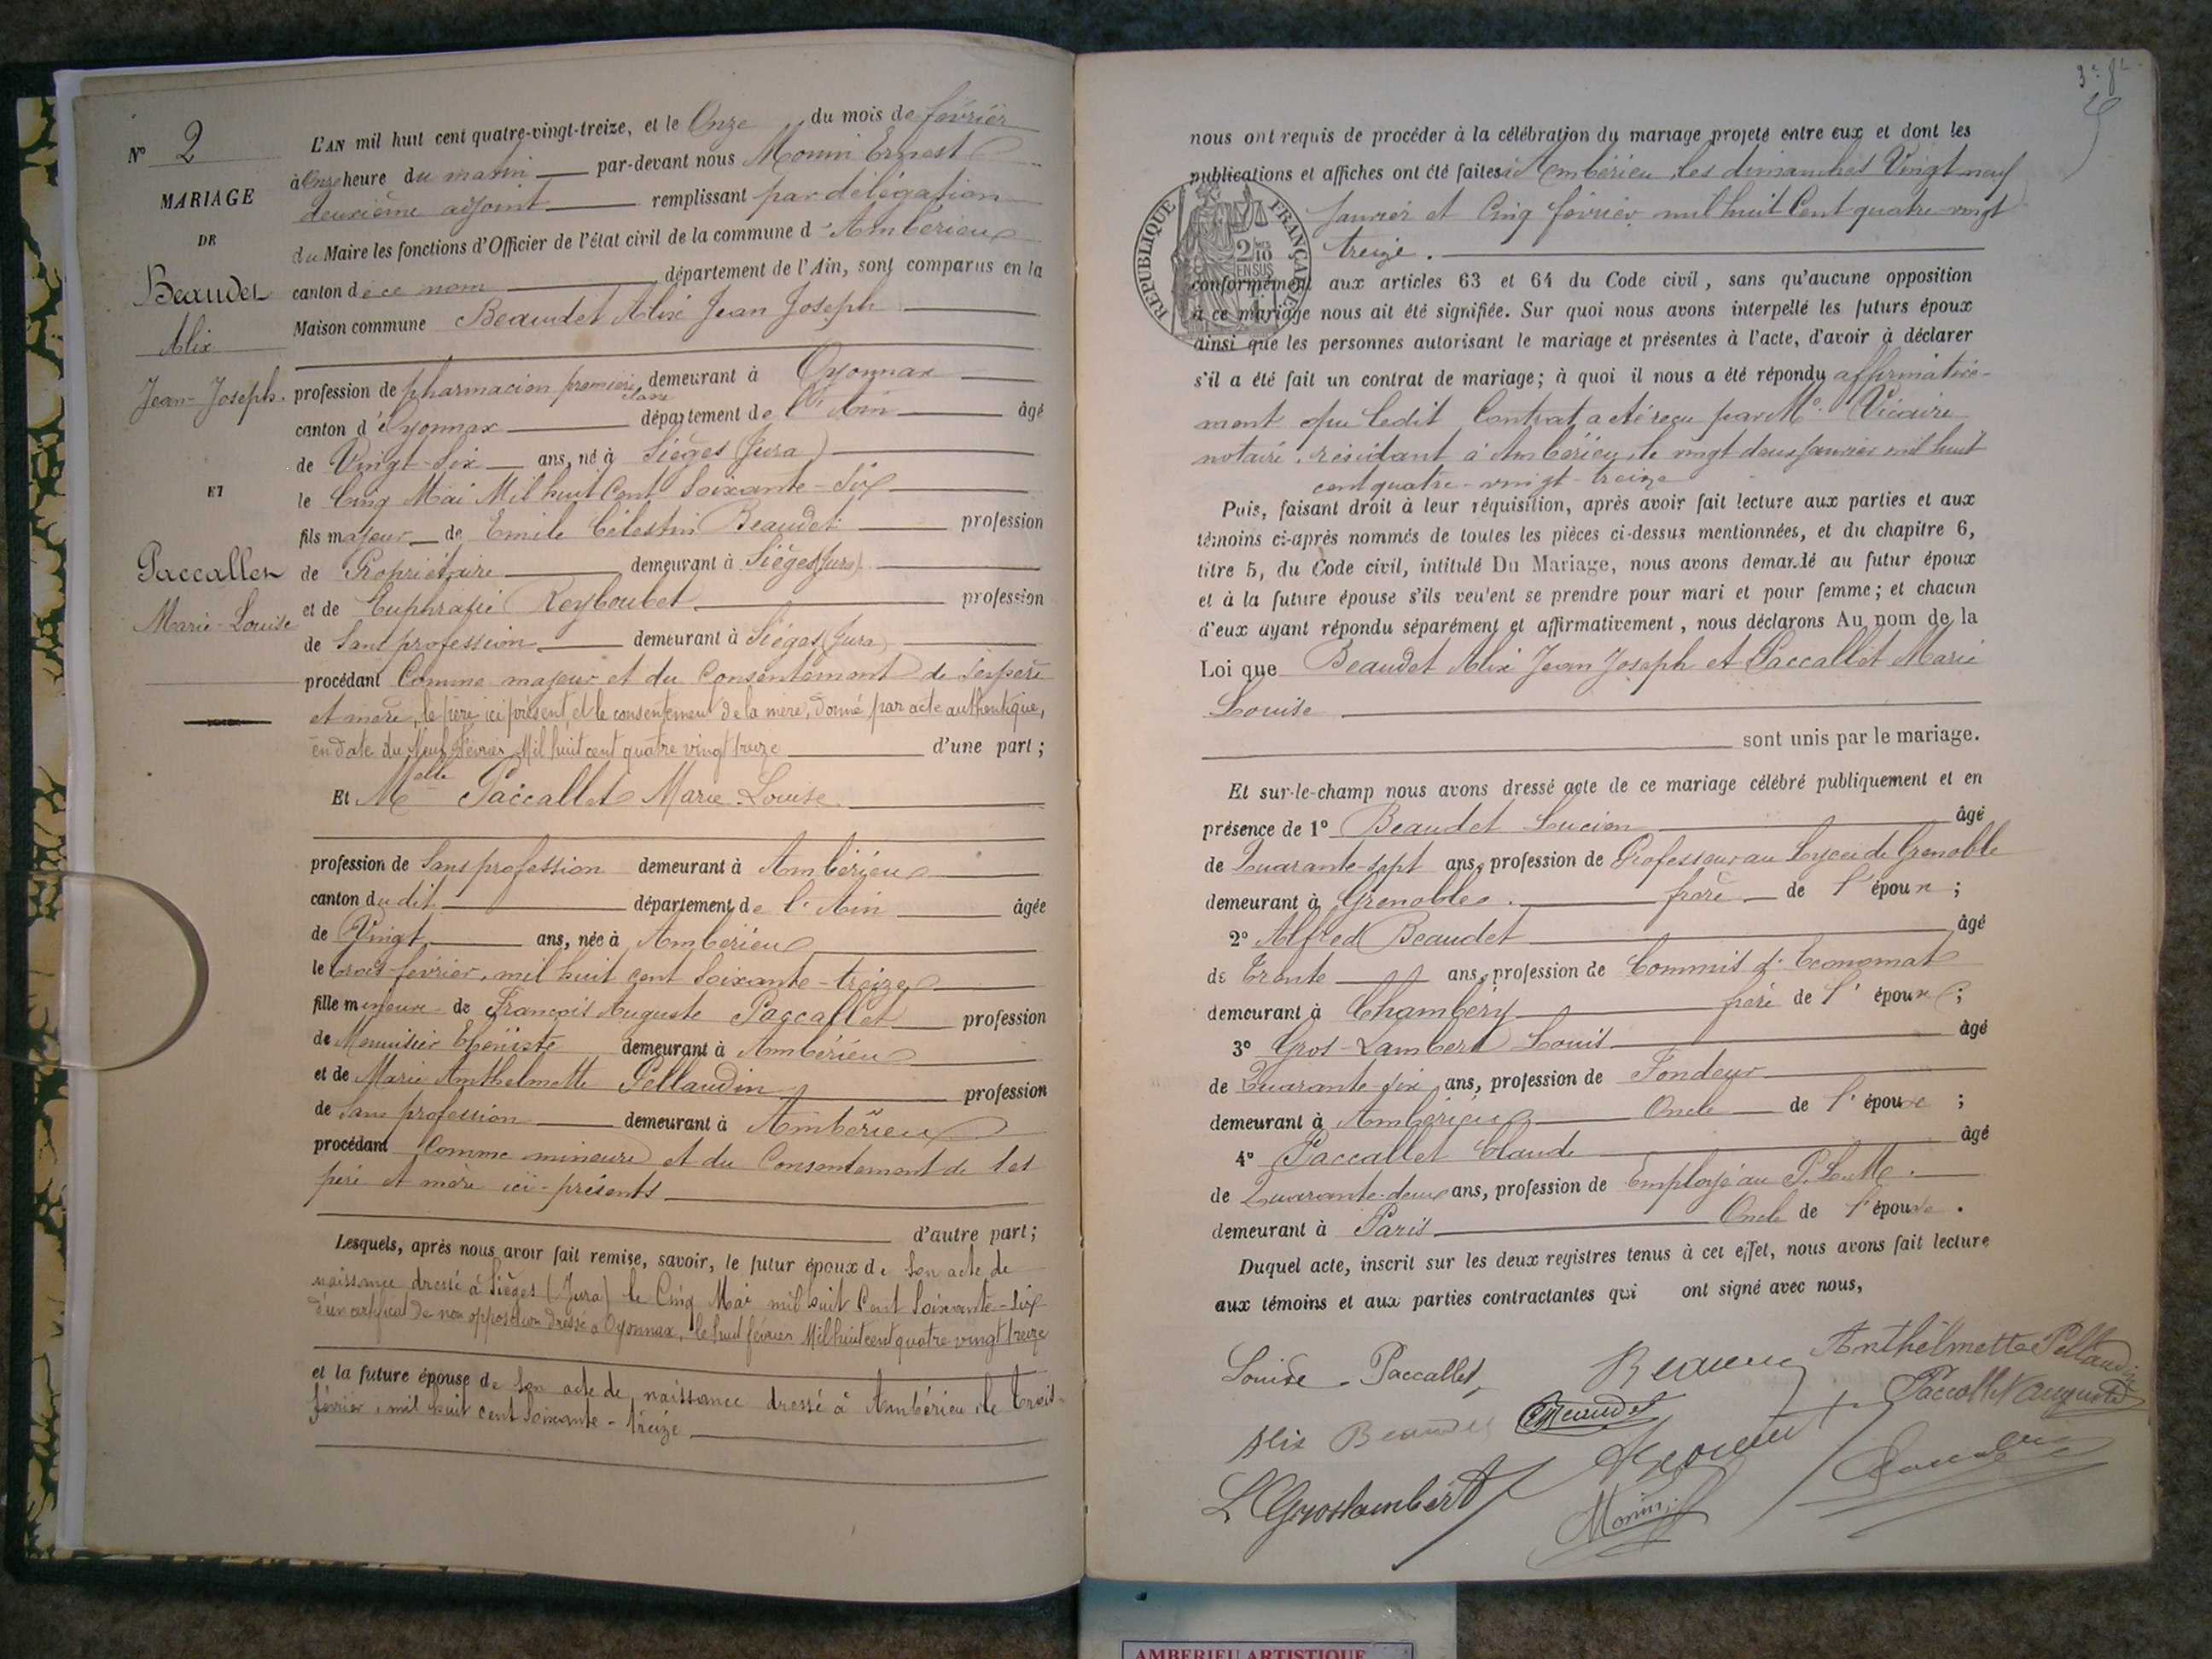 N° 2
MARIAGE
DE
Beaudet
Alix
Jean-Joseph.
ET
Paccallet
Marie-Louise
L'AN mil huit cent quatre-vingt-treize, et le Onze du mois de février
à Onze heure du matin par-devant nous Monin Ernest
deuxième adjoint remplissant par délégation
du Maire les fonctions d'Officier de l'état civil de la commune d'Ambérieu
canton de ce nom département de l'Ain, sont comparus en la
Maison commune Beaudet Alix Jean Joseph
profession de pharmacien première classe demeurant à Oyonnax
canton d'Oyonnax département de l'Ain âgé
de Vingt-six ans, né à Sièges (Jura)
le Cinq Mai Mil huit Cent Soixante-Six
fils majeur de Emile Célestin Beaudet profession
de Propriétaire demeurant à Sièges (Jura)
et de Euphrasie Reyboubet profession
de Sans profession demeurant à Sièges (Jura)
procédant Comme majeur et du Consentement de ses père
et mère, le père ici présent, et le consentement de la mère, donné par acte authentique,
en date du Neuf Février Mil huit cent quatre vingt treize d'une part ;
Et Melle Paccallet Marie Louise
profession de Sans profession demeurant à Ambérieu
canton du dit département de l'Ain âgée
de Vingt ans, née à Ambérieu
le trois février, mil huit cent Soixante-treize
fille mineure de François Auguste Paccallet profession
de Menuisier Ebéniste demeurant à Ambérieu
et de Marie Anthelmette Pellaudin profession
de Sans profession demeurant à Ambérieu
procédant Comme mineure et du Consentement de ses
père et mère ici-présents
d'autre part ;
Lesquels, après nous avoir fait remise, savoir, le futur époux de Son acte de
naissance dressé à Sièges (Jura) le Cinq Mai mil huit Cent Soixante-Six
d'un certificat de non opposition dressé à Oyonnax, le huit février Mil huit cent quatre vingt treize
et la future épouse de Son acte de naissance dressé à Ambérieu, le trois
février, mil huit cent soixante-treize
nous ont requis de procéder à la célébration du mariage projeté entre eux et dont les
publications et affiches ont été faites à Ambérieu, les dimanches Vingt neuf
Janvier et Cinq février mil huit Cent quatre-vingt
treize.
RÉPUBLIQUE FRANÇAISE
2/10
EN SUS
conformément aux articles 63 et 64 du Code civil, sans qu'aucune opposition
à ce mariage nous ait été signifiée. Sur quoi nous avons interpellé les futurs époux
ainsi que les personnes autorisant le mariage et présentes à l'acte, d'avoir à déclarer
s'il a été fait un contrat de mariage ; à quoi il nous a été répondu affirmative-
ment que ledit Contrat a été reçu par Me Vicaire
notaire, résidant à Ambérieu, le vingt deux Janvier mil huit
cent quatre-vingt-treize
Puis, faisant droit à leur réquisition, après avoir fait lecture aux parties et aux
témoins ci-après nommés de toutes les pièces ci-dessus mentionnées, et du chapitre 6,
titre 5, du Code civil, intitulé Du Mariage, nous avons demandé au futur époux
et à la future épouse s'ils veulent se prendre pour mari et pour femme ; et chacun
d'eux ayant répondu séparément et affirmativement, nous déclarons Au nom de la
Loi que Beaudet Alix Jean Joseph et Paccallet Marie
Louise
sont unis par le mariage.
Et sur-le-champ nous avons dressé acte de ce mariage célébré publiquement et en
présence de 1° Beaudet Lucien âgé
de Quarante-sept ans, profession de Professeur au Lycée de Grenoble
demeurant à Grenoble. frère de l'époux ;
2° Alfred Beaudet âgé
de Trente ans, profession de Commis d'Economat
demeurant à Chambéry frère de l'époux ;
3° Gros-Lambert Louis âgé
de Quarante-six ans, profession de Fondeur
demeurant à Ambérieu Oncle de l'épouse ;
4° Paccallet Claude âgé
de Quarante-deux ans, profession de Employé au P. L. M.
demeurant à Paris Oncle de l'épouse.
Duquel acte, inscrit sur les deux registres tenus à cet effet, nous avons fait lecture
aux témoins et aux parties contractantes qui ont signé avec nous,
Louise Paccallet
Anthelmette Pellaudin
Paccallet Auguste
Alix Beaudet
Beaudet
L Groslambert
Monin
AMBERIEU ARTISTIQUE